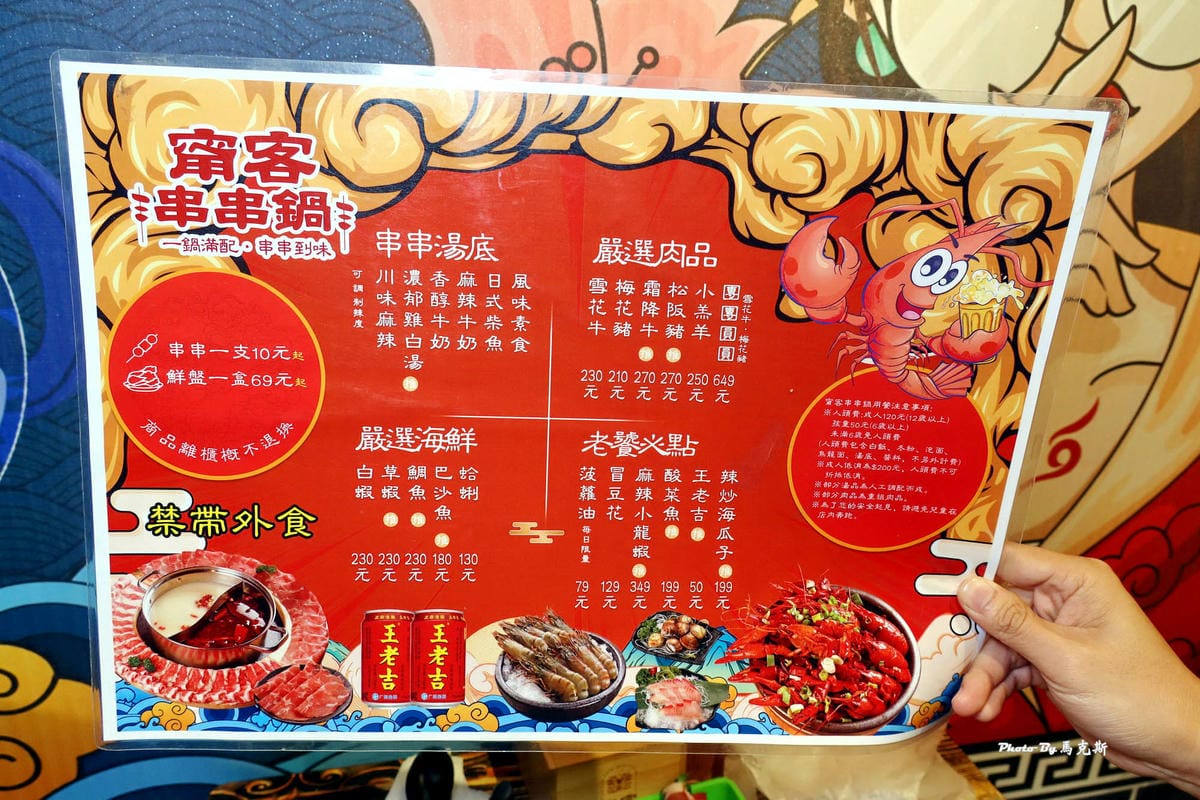 甯客
串串鍋
一鍋滿配·串串到味
串串一支10元起
鮮盤一盒69元起
商品離櫃概不退換
禁帶外食
串串湯底
可調制辣度
川味麻辣
濃郁雞白湯 推
香醇牛奶
麻辣牛奶
日式柴魚
風味素食
嚴選肉品
雪花牛 230元
梅花豬 210元
霜降牛 推 270元
松阪豬 推 270元
小羔羊 250元
團團圓圓 雪花牛·梅花豬 649元
嚴選海鮮
白蝦 230元
草蝦 推 230元
鯛魚 推 230元
巴沙魚 推 180元
蛤蜊 130元
老饕必點
菠蘿油 每日限量 79元
冒豆花 129元
麻辣小龍蝦 推 349元
酸菜魚 推 199元
王老吉 推 50元
辣炒海瓜子 推 199元
甯客串串鍋用餐注意事項:
※人頭費:成人120元(12歲以上)
孩童50元(6歲以上)
未滿6歲免人頭費
(人頭費包含白飯、冬粉、泡面、
烏龍面、湯底、醬料、不另外計費)
※成人低消為$200元，人頭費不可
折抵低消。
※部分湯品為人工調配而成。
※部分肉品為重組肉品。
※為了您的安全起見，請避免兒童在
店內奔跑。
王老吉
王老吉
Photo By 馬克斯